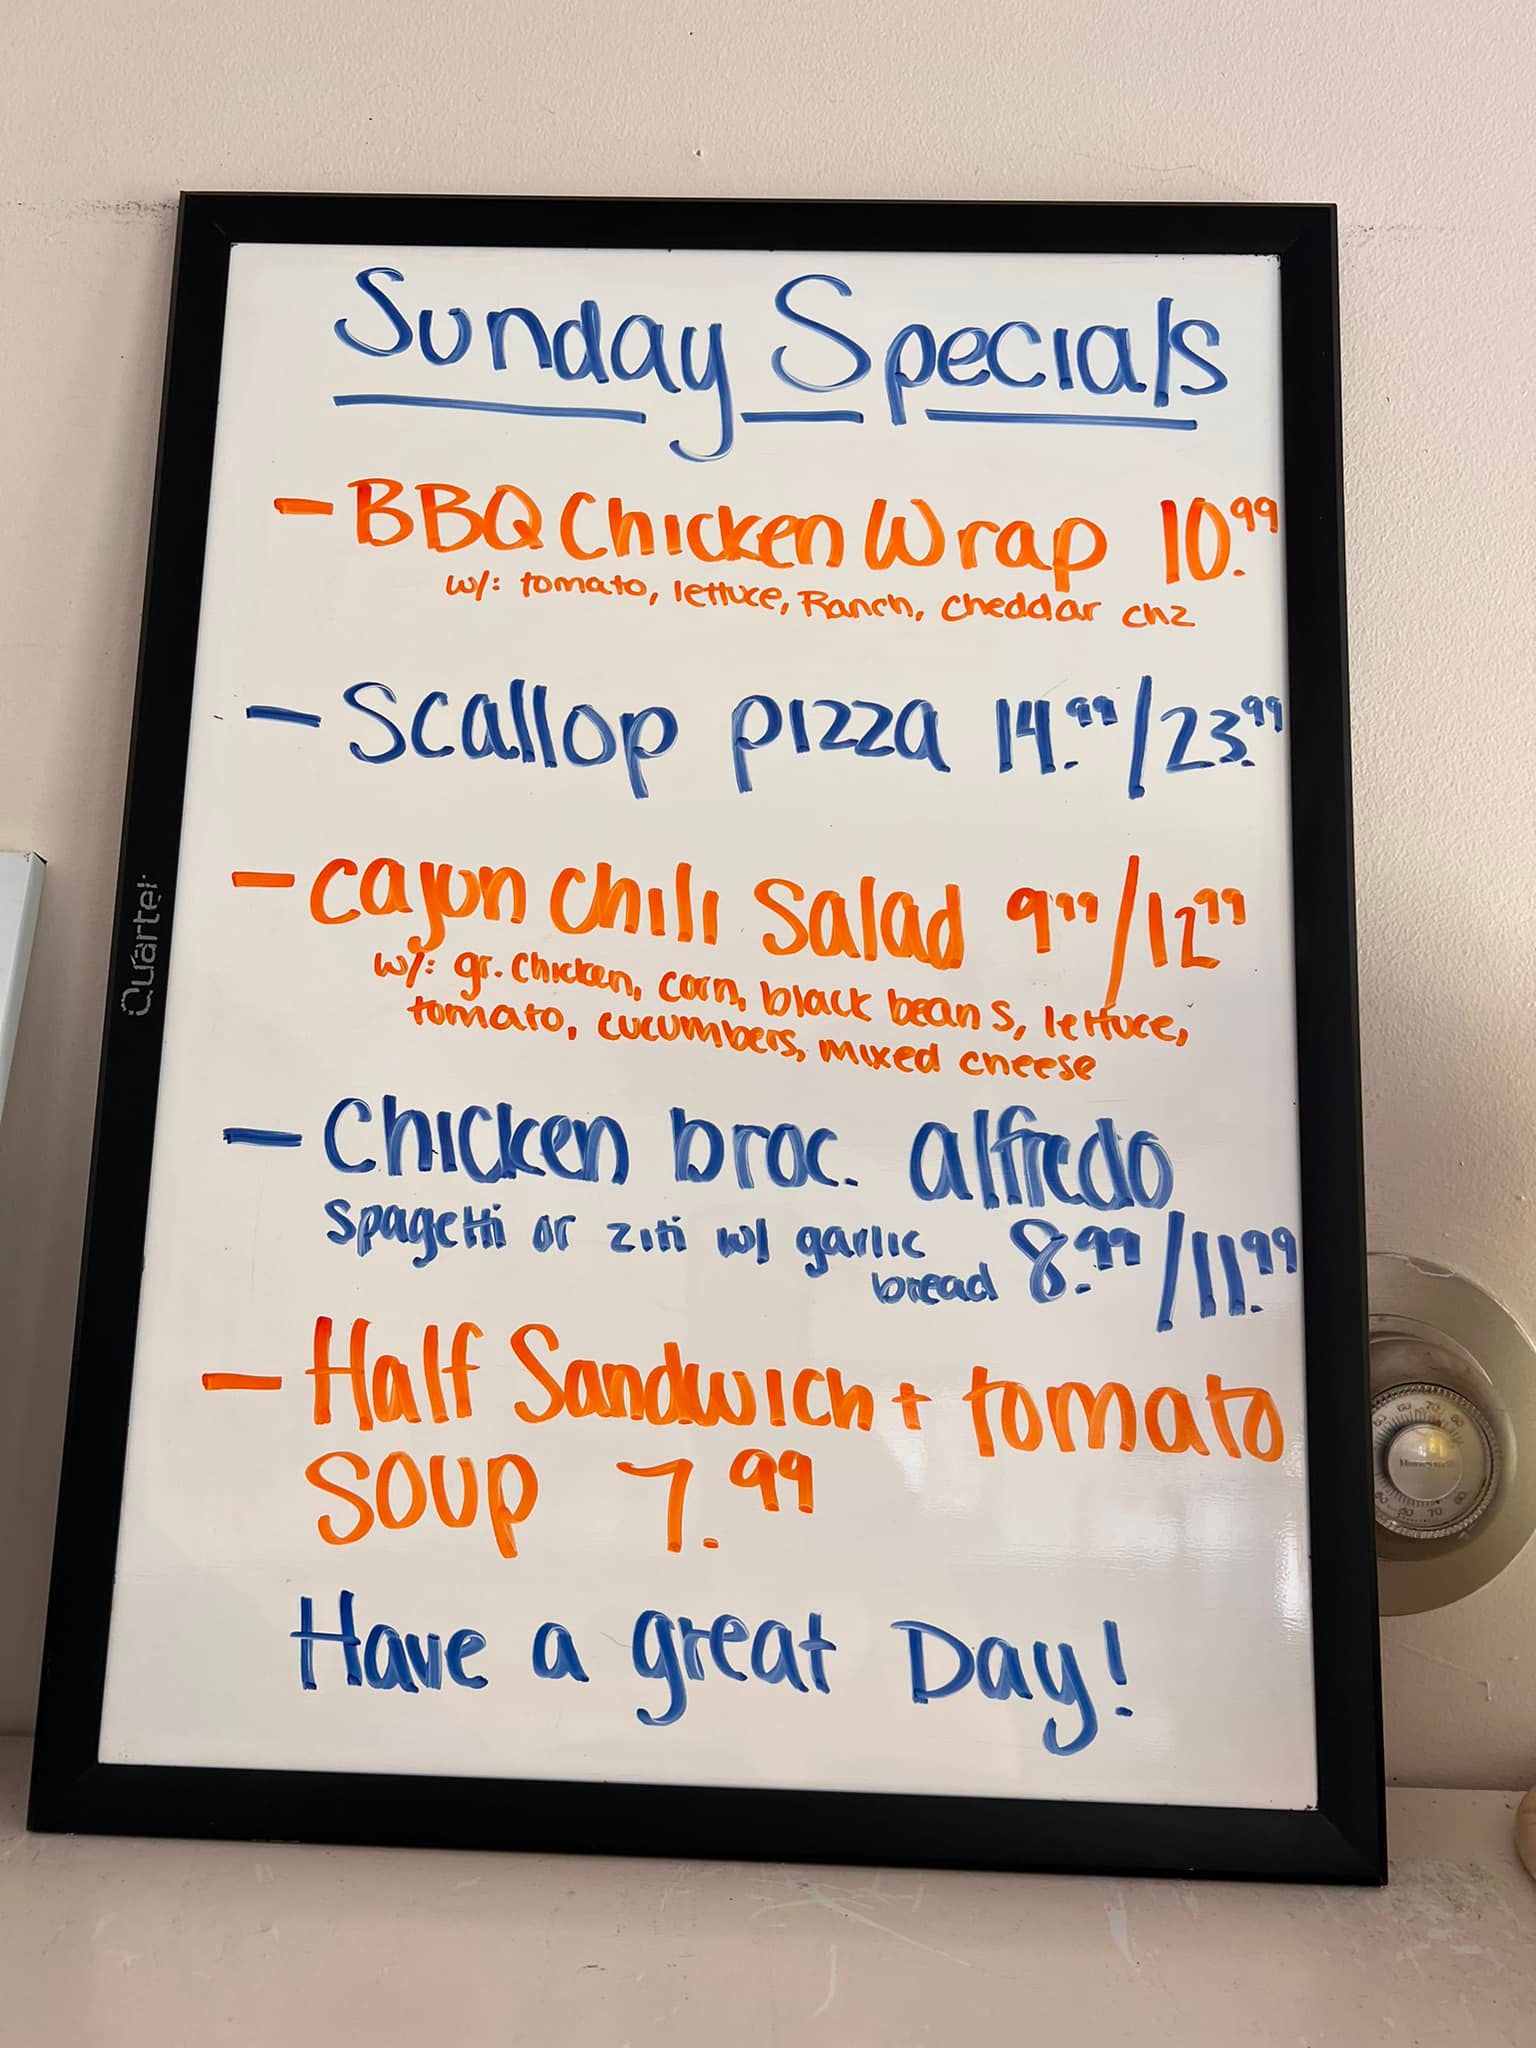 Sunday Specials
- BBQ Chicken Wrap 10.99
w/: tomato, lettuce, Ranch, cheddar chz
- Scallop pizza 14.99/23.99
- Cajun Chili Salad 9 99/12 99
w/: gr. chicken, corn, black beans, lettuce,
tomato, cucumbers, mixed cheese
- Chicken broc. alfredo
Spagetti or ziti w/ garlic
bread 8.99/11.99
- Half Sandwich + tomato
Soup 7.99
Have a great Day!
Quartet
Honeywell